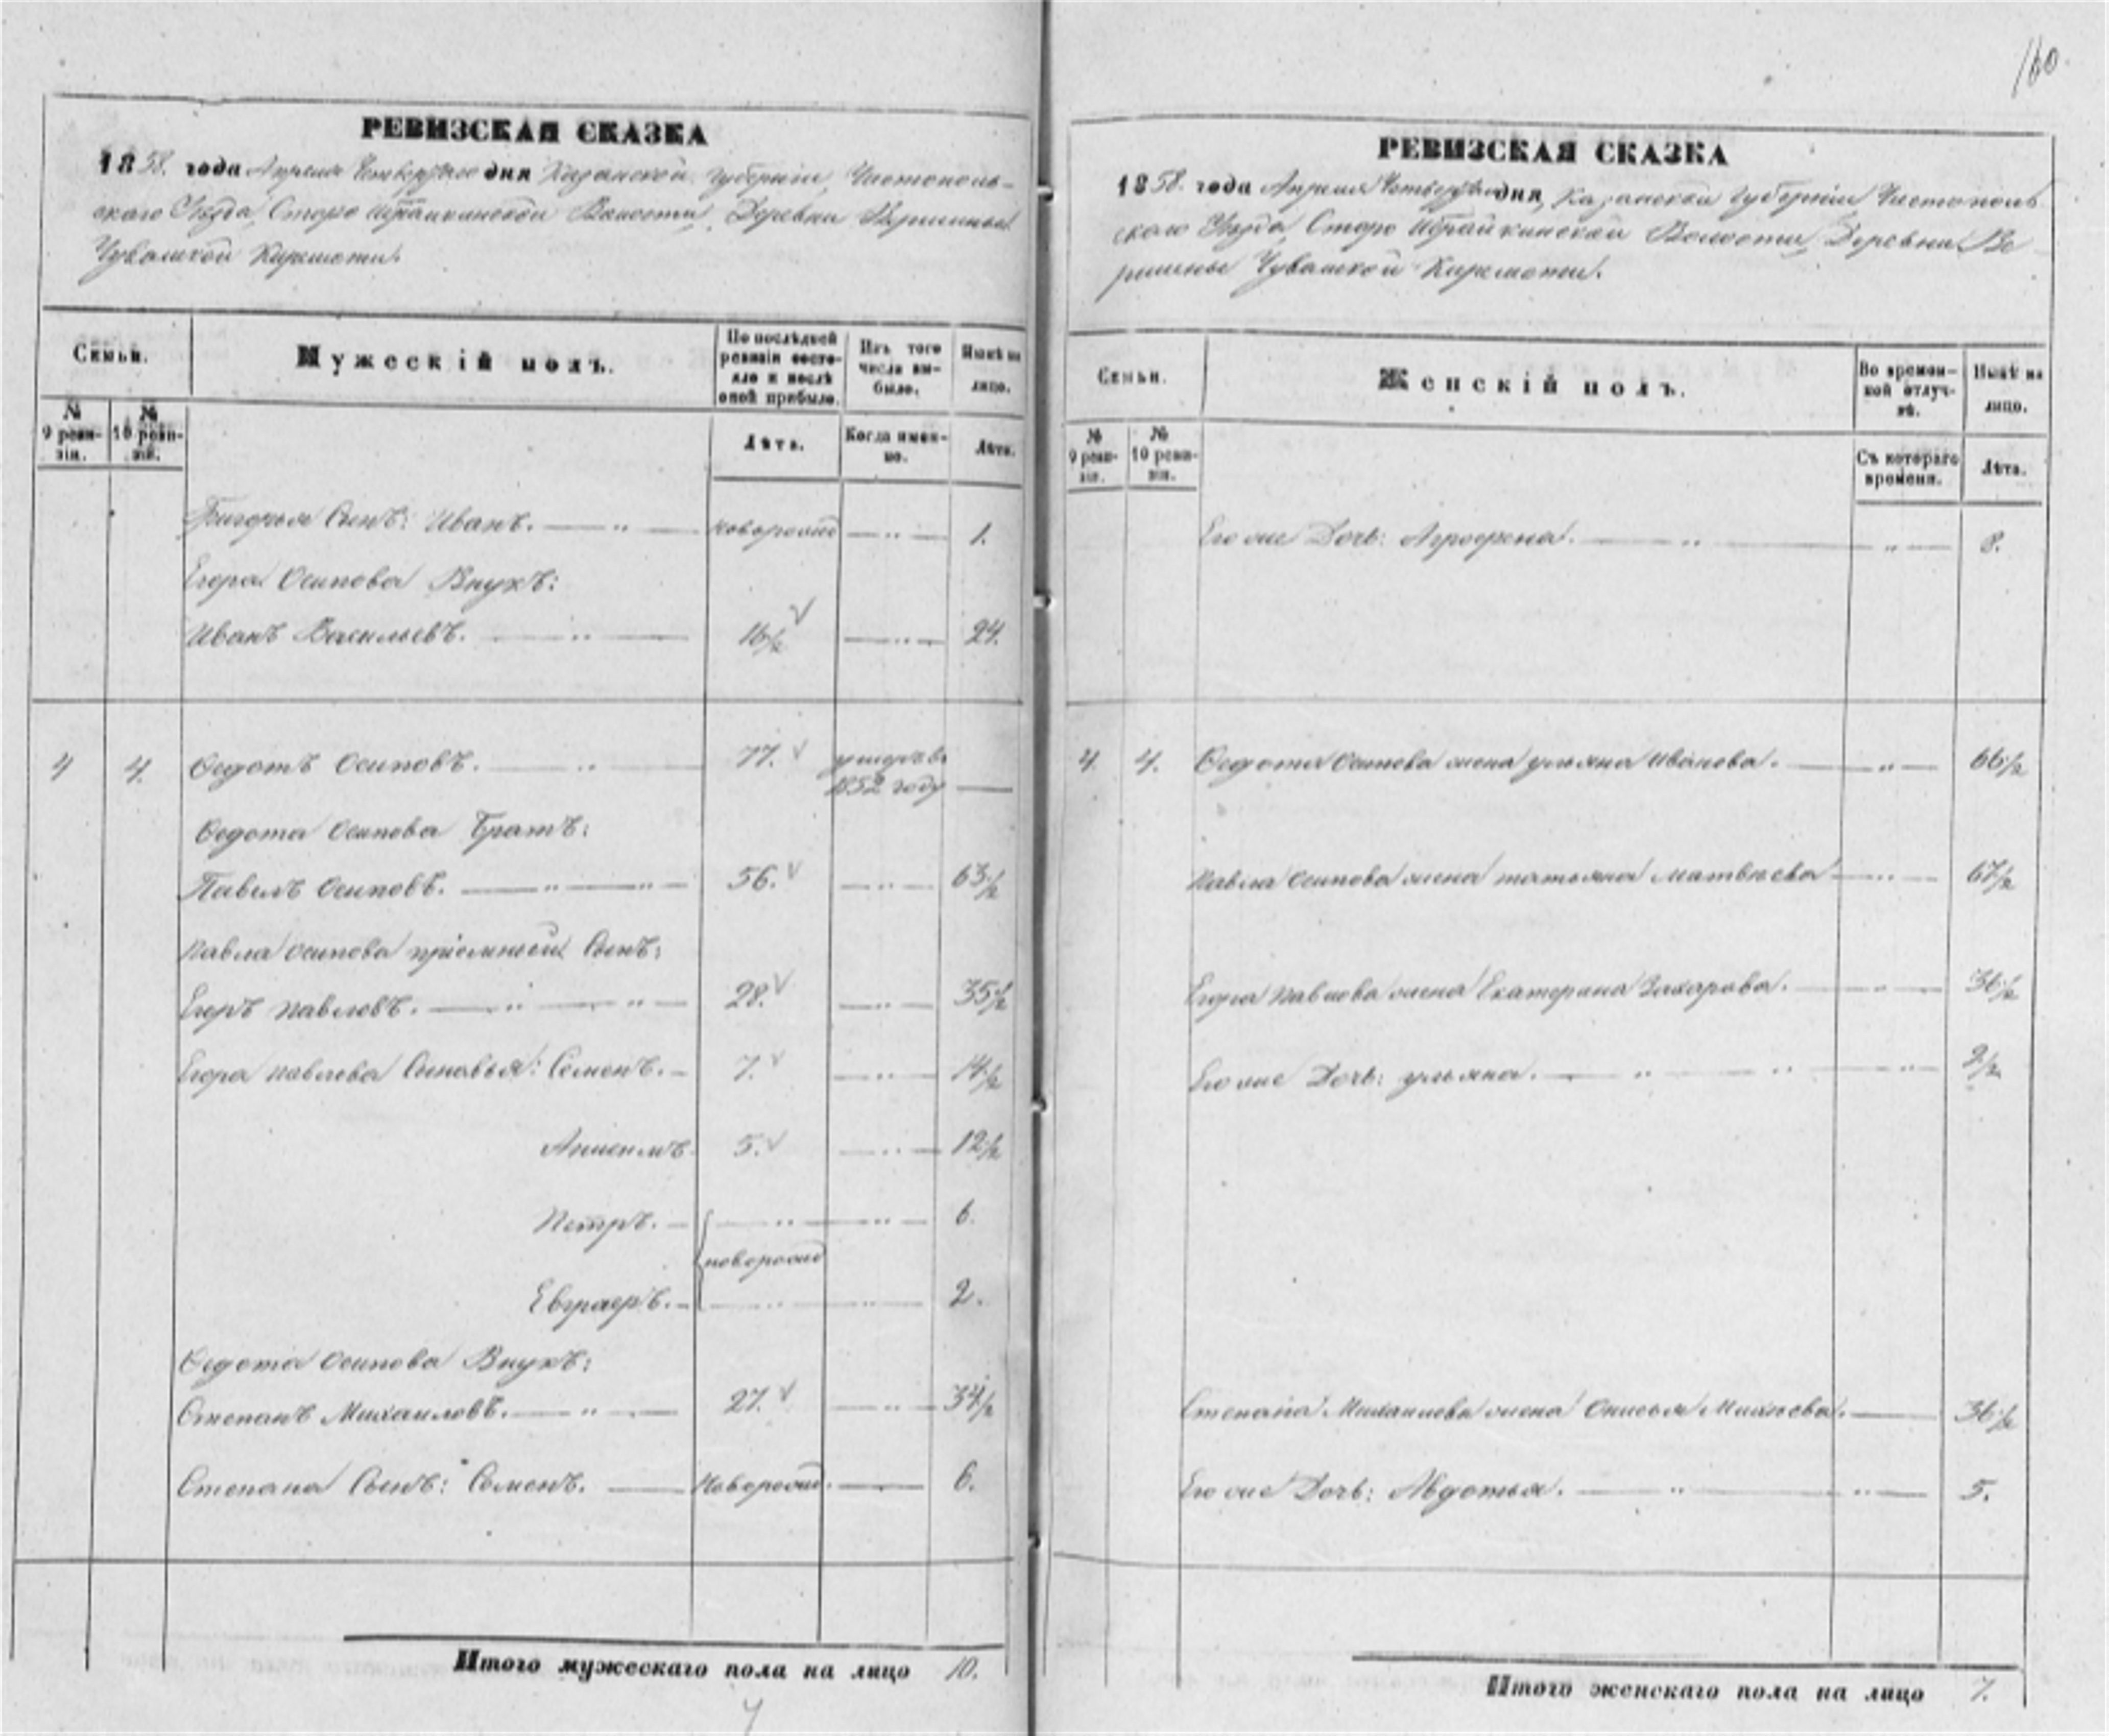 160
РЕВИЗСКАЯ СКАЗКА
1858. года Апреля Четвертаго дня Казанской Губерніи, Чистополь-
скаго Уѣзда, Старо Ибрайкинской Волости, Деревни Вершины
Чувашкой Киремети.
Семьи.
Мужескій полъ.
По послѣдней ревизіи состояло и послѣ оной прибыло.
Изъ того числа выбыло.
Нынѣ на лицо.
№ 9 ревизіи.
№ 10 ревизіи.
Лѣта.
Когда именно.
Лѣта.
Григорья Сынъ: Иванъ. — " — новорожд — " — 1.
Егора Осипова Внукъ:
Иванъ Васильевъ. — " — 16½ — " — 24.
4 4. Ѳедотъ Осиповъ. — " — 77. умеръ въ
1852 году —
Ѳедота Осипова Братъ:
Павелъ Осиповъ. — " — " — 56. — " — 63½
Павла Осипова приемный Сынъ:
Егоръ Павловъ. — " — " — 28. — " — 35½
Егора Павлова Сыновья: Семенъ. — 7. — " — 14½
5. — " — 12½
Петръ. — " — " — 6.
новорожд
Евграфъ. — " — " — 2.
Ѳедота Осипова Внукъ:
Степанъ Михаиловъ. — " — 27. — " — 34½
Степана Сынъ: Семенъ. — Новорожд. — 6.
Итого мужескаго пола на лицо 10.
РЕВИЗСКАЯ СКАЗКА
1858. года Апреля Четвертаго дня, Казанской Губерніи Чистополь
скаго Уѣзда Старо Ибрайкинской Волости, Деревни Ве
ршины Чувашской Киремети.
Семьи.
Женскій полъ.
Во временной отлучкѣ.
Нынѣ на лицо.
№ 9 ревизіи.
№ 10 ревизіи.
Съ котораго времени.
Лѣта.
Его же Дочь: Агрофена. — " — " — 8.
4. 4. Ѳедота Осипова жена Ульяна Иванова. — " — 66½
Павла Осипова жена Татьяна Матвѣева — " — 67½
Егора Павлова жена Екатерина Захарова. — " — 36½
Его же Дочь: Ульяна. — " — " — " — 2½
Степана Михаилова жена Анисья — 36½
Его же Дочь: Авдотья. — " — " — 5.
Итого женскаго пола на лицо 7.